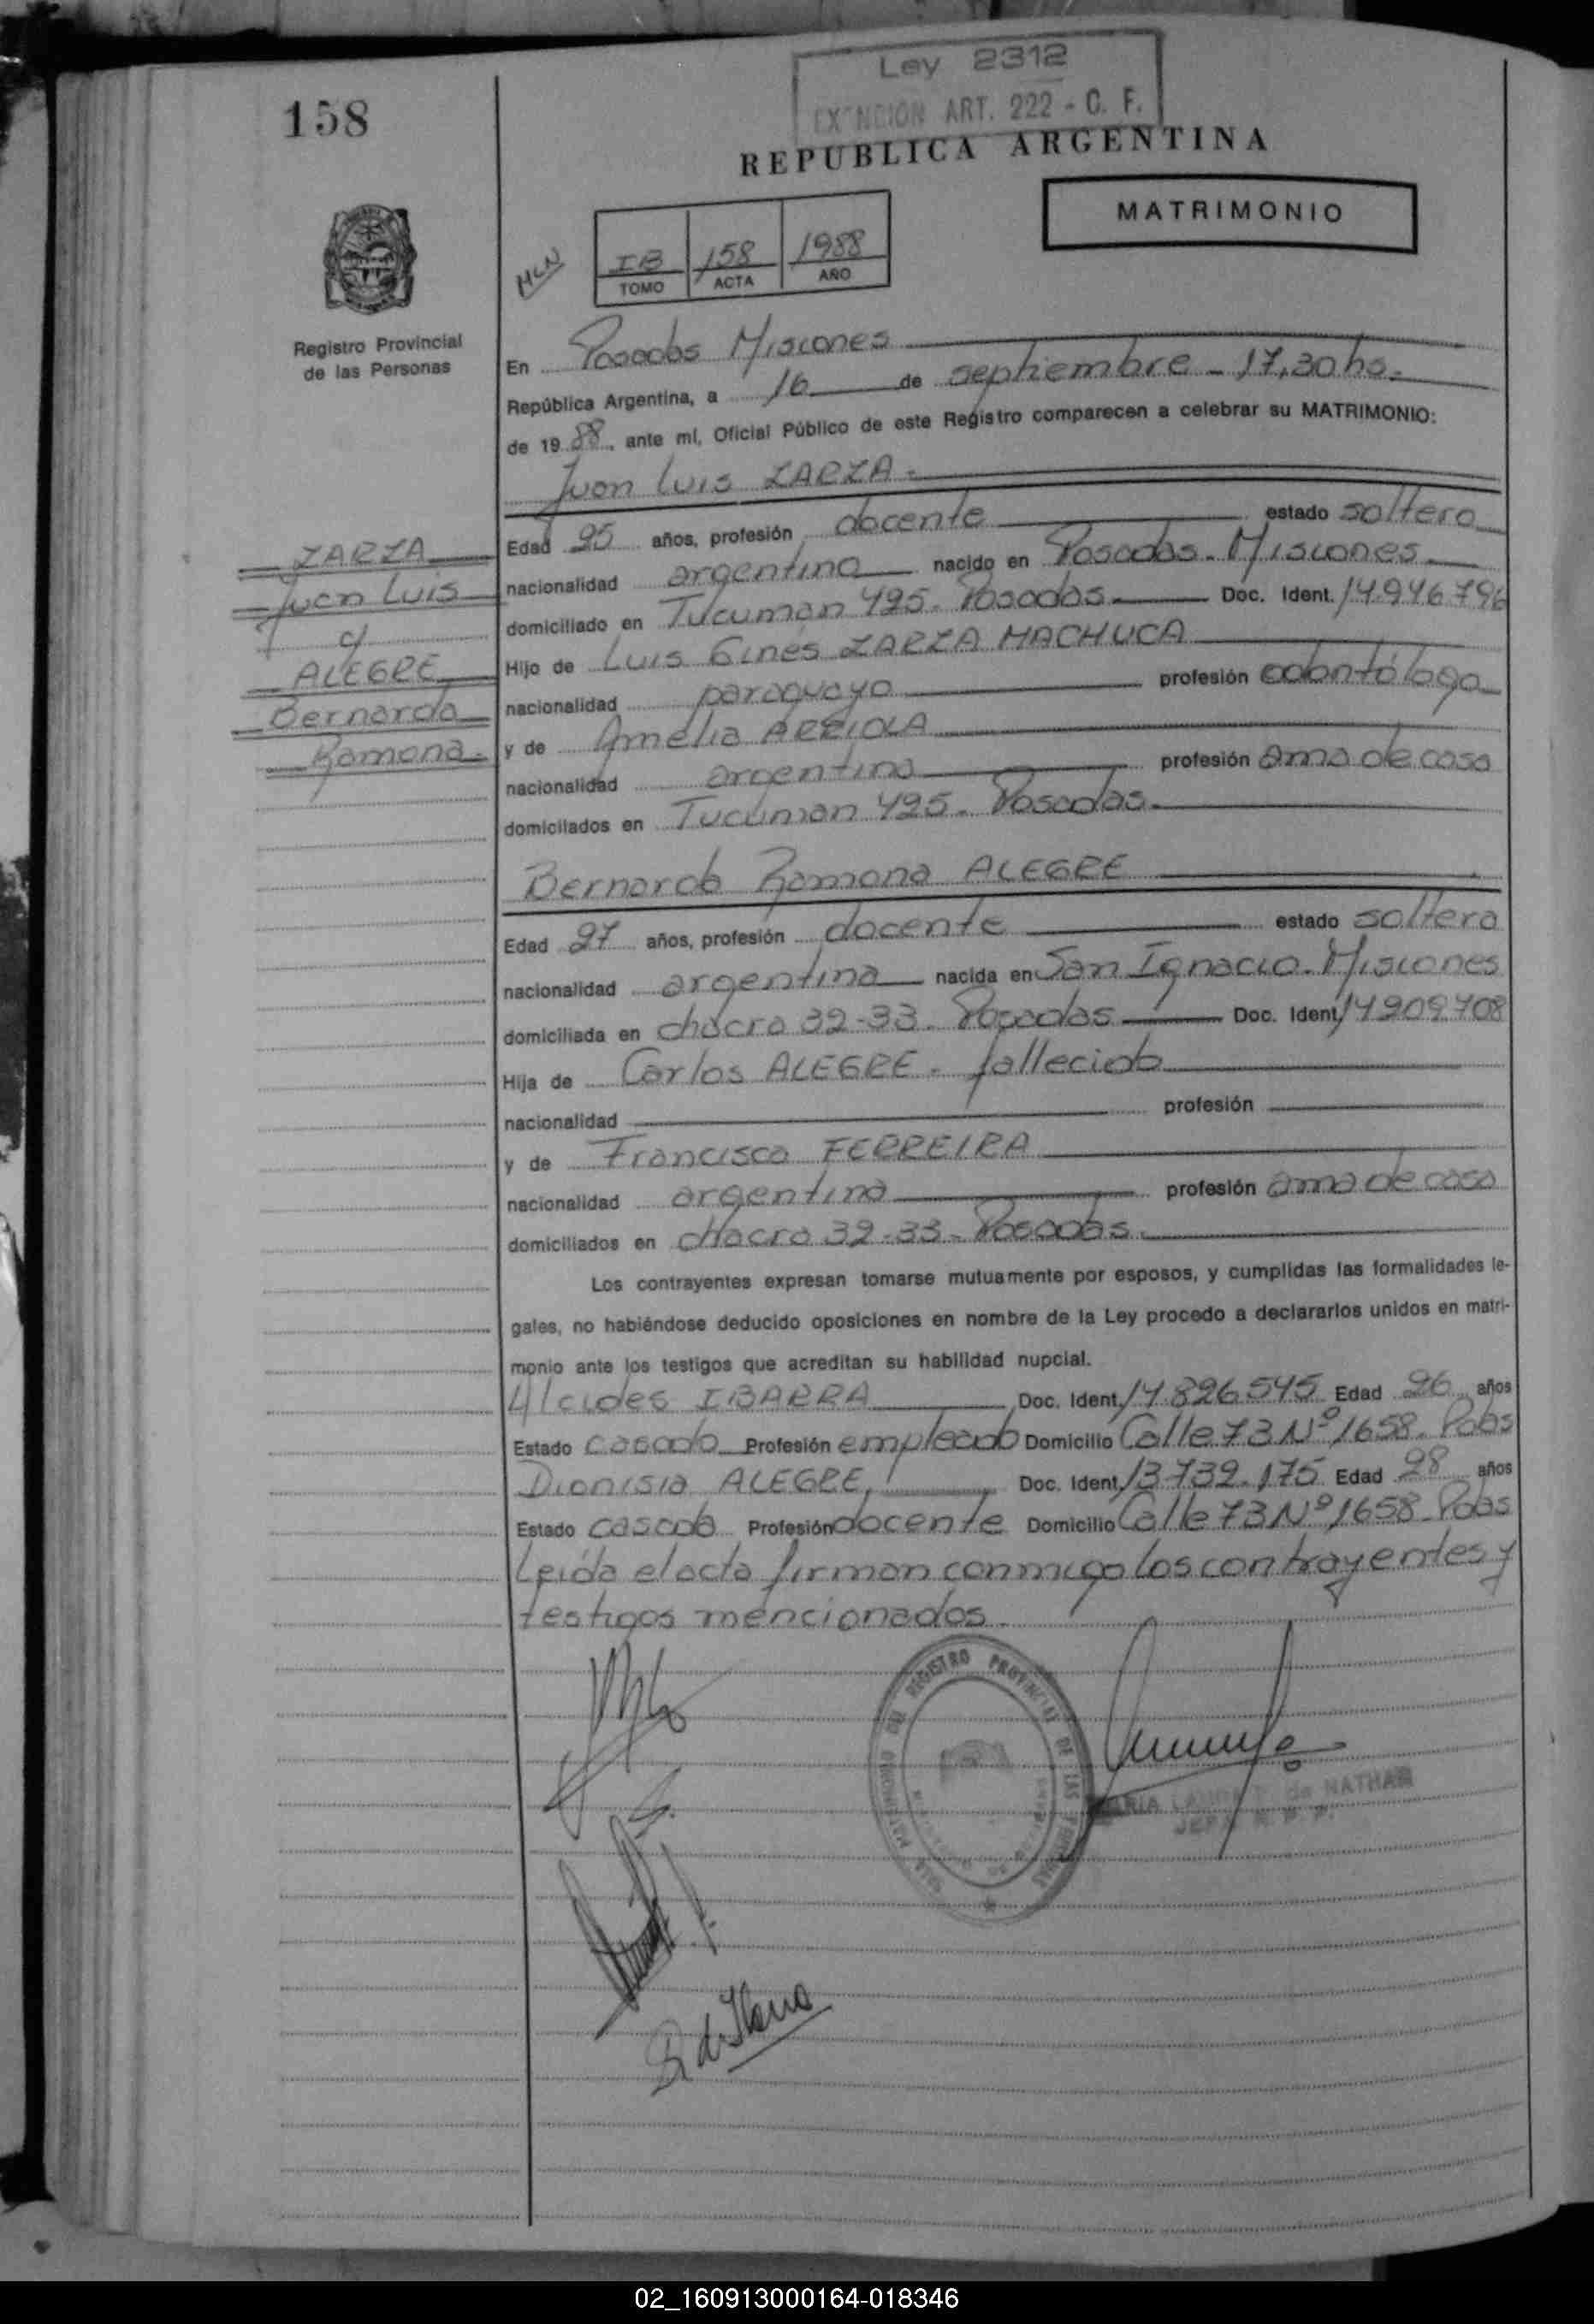 Ley 2312
EXENCION ART. 222 - C. F.
158
REPUBLICA ARGENTINA
MATRIMONIO
MCN
IB 158 1988
TOMO ACTA AÑO
Registro Provincial
de las Personas
En Posadas Misiones
República Argentina, a 16 de septiembre - 17,30 hs.
de 1988, ante mí, Oficial Público de este Registro comparecen a celebrar su MATRIMONIO:
Juan Luis ZARZA.
Edad 25 años, profesión docente estado soltero
nacionalidad argentino nacido en Posadas - Misiones
domiciliado en Tucuman 425 - Posadas Doc. Ident. 14.946.796
Hijo de Luis Ginés ZARZA MACHUCA
nacionalidad paraguayo profesión odontólogo
y de Amelia ARRIOLA
nacionalidad argentina profesión ama de casa
domiciliados en Tucuman 425 - Posadas.
ZARZA
Juan Luis
c/
ALEGRE
Bernarda
Ramona.
Bernarda Ramona ALEGRE
Edad 27 años, profesión docente estado soltera
nacionalidad argentina nacida en San Ignacio - Misiones
domiciliada en chacra 32-33 - Posadas Doc. Ident. 14209708
Hija de Carlos ALEGRE - fallecido
nacionalidad profesión
y de Francisca FERREIRA
nacionalidad argentina profesión ama de casa
domiciliados en chacra 32-33 - Posadas.
Los contrayentes expresan tomarse mutuamente por esposos, y cumplidas las formalidades le-
gales, no habiéndose deducido oposiciones en nombre de la Ley procedo a declararlos unidos en matri-
monio ante los testigos que acreditan su habilidad nupcial.
Alcides IBARRA Doc. Ident. 14.826.545 Edad 26 años
Estado casado Profesión empleado Domicilio Calle 73 Nº 1658 - Pdas
Dionisia ALEGRE, Doc. Ident. 13.732.175 Edad 28 años
Estado casada Profesión docente Domicilio Calle 73 Nº 1658 - Pdas
Leída el acta firman conmigo los contrayentes y
testigos mencionados.
REGISTRO PROVINCIAL DE LAS PERSONAS
de NATHAN
JEFA R. P. P.
de Ibarra
02_160913000164-018346